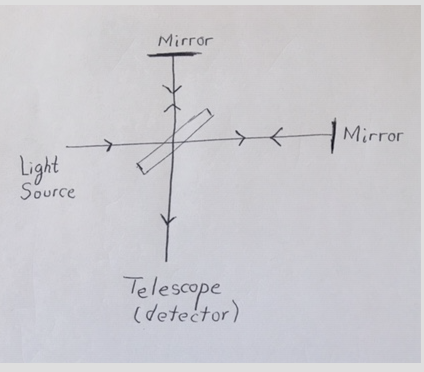 Mirror
Mirror
Light
Source
Telescope
(detector)